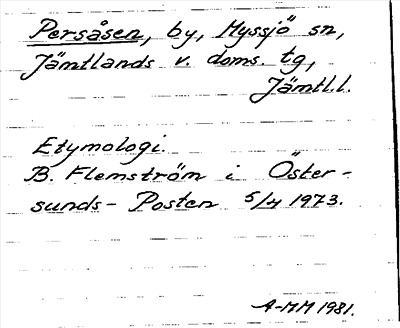 Persåsen, by, Myssjö sn,
Jämtlands v. doms. tg,
Jämtl.l.
Etymologi.
B. Flemström i Öster-
sunds-Posten 5/4 1973.
A-MM 1981.